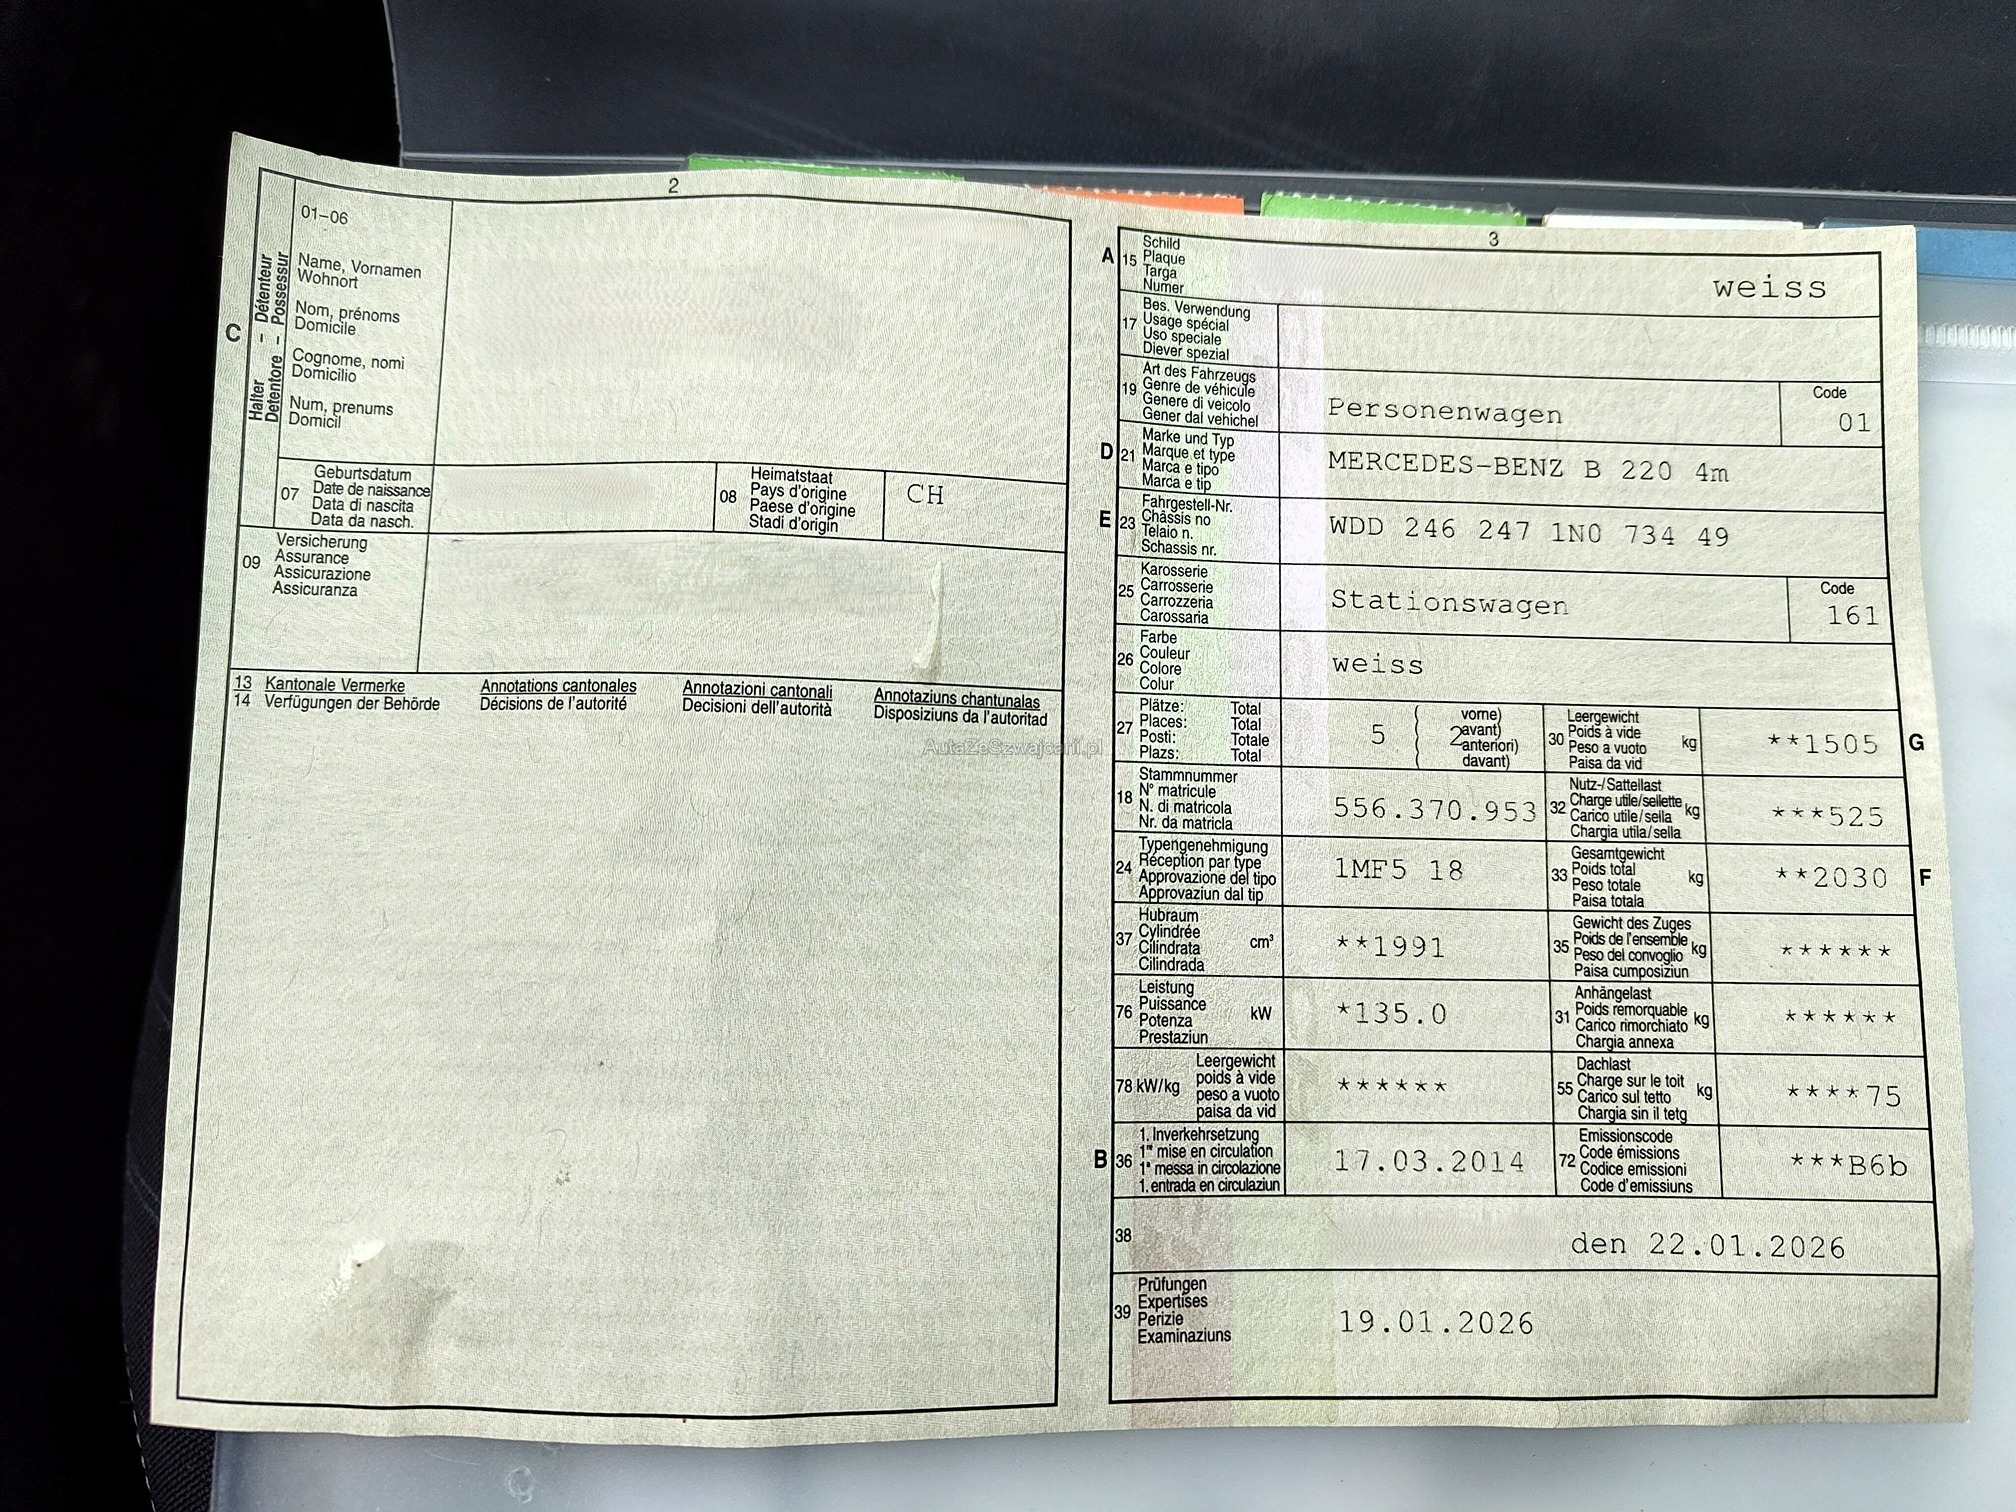 2
01–06
Name, Vornamen
Wohnort
Nom, prénoms
Domicile
Cognome, nomi
Domicilio
Num, prenums
Domicil
C
Halter – Détenteur
Detentore – Possessur
07
Geburtsdatum
Date de naissance
Data di nascita
Data da nasch.
08
Heimatstaat
Pays d'origine
Paese d'origine
Stadi d'origin
CH
09
Versicherung
Assurance
Assicurazione
Assicuranza
13 Kantonale Vermerke Annotations cantonales Annotazioni cantonali Annotaziuns chantunalas
14 Verfügungen der Behörde Décisions de l'autorité Decisioni dell'autorità Disposiziuns da l'autoritad
AutaZeSzwajcarii.pl
3
A 15
Schild
Plaque
Targa
Numer
weiss
17
Bes. Verwendung
Usage spécial
Uso speciale
Diever spezial
19
Art des Fahrzeugs
Genre de véhicule
Genere di veicolo
Gener dal vehichel
Personenwagen
Code
01
D 21
Marke und Typ
Marque et type
Marca e tipo
Marca e tip
MERCEDES-BENZ B 220 4m
E 23
Fahrgestell-Nr.
Châssis no
Telaio n.
Schassis nr.
WDD 246 247 1N0 734 49
25
Karosserie
Carrosserie
Carrozzeria
Carossaria
Stationswagen
Code
161
26
Farbe
Couleur
Colore
Colur
weiss
27
Plätze: Total
Places: Total
Posti: Totale
Plazs: Total
5
2
vorne)
avant)
anteriori)
davant)
30
Leergewicht
Poids à vide
Peso a vuoto
Paisa da vid
kg
**1505
G
18
Stammnummer
N° matricule
N. di matricola
Nr. da matricla
556.370.953
32
Nutz-/Sattellast
Charge utile/sellette
Carico utile/sella
Chargia utila/sella
kg
***525
24
Typengenehmigung
Réception par type
Approvazione del tipo
Approvaziun dal tip
1MF5 18
33
Gesamtgewicht
Poids total
Peso totale
Paisa totala
kg
**2030
F
37
Hubraum
Cylindrée
Cilindrata
Cilindrada
cm³
**1991
35
Gewicht des Zuges
Poids de l'ensemble
Peso del convoglio
Paisa cumposiziun
kg
******
76
Leistung
Puissance
Potenza
Prestaziun
kW
*135.0
31
Anhängelast
Poids remorquable
Carico rimorchiato
Chargia annexa
kg
******
78 kW/kg
Leergewicht
poids à vide
peso a vuoto
paisa da vid
******
55
Dachlast
Charge sur le toit
Carico sul tetto
Chargia sin il tetg
kg
****75
B 36
1. Inverkehrsetzung
1re mise en circulation
1a messa in circolazione
1. entrada en circulaziun
17.03.2014
72
Emissionscode
Code émissions
Codice emissioni
Code d'emissiuns
***B6b
38
den 22.01.2026
39
Prüfungen
Expertises
Perizie
Examinaziuns
19.01.2026